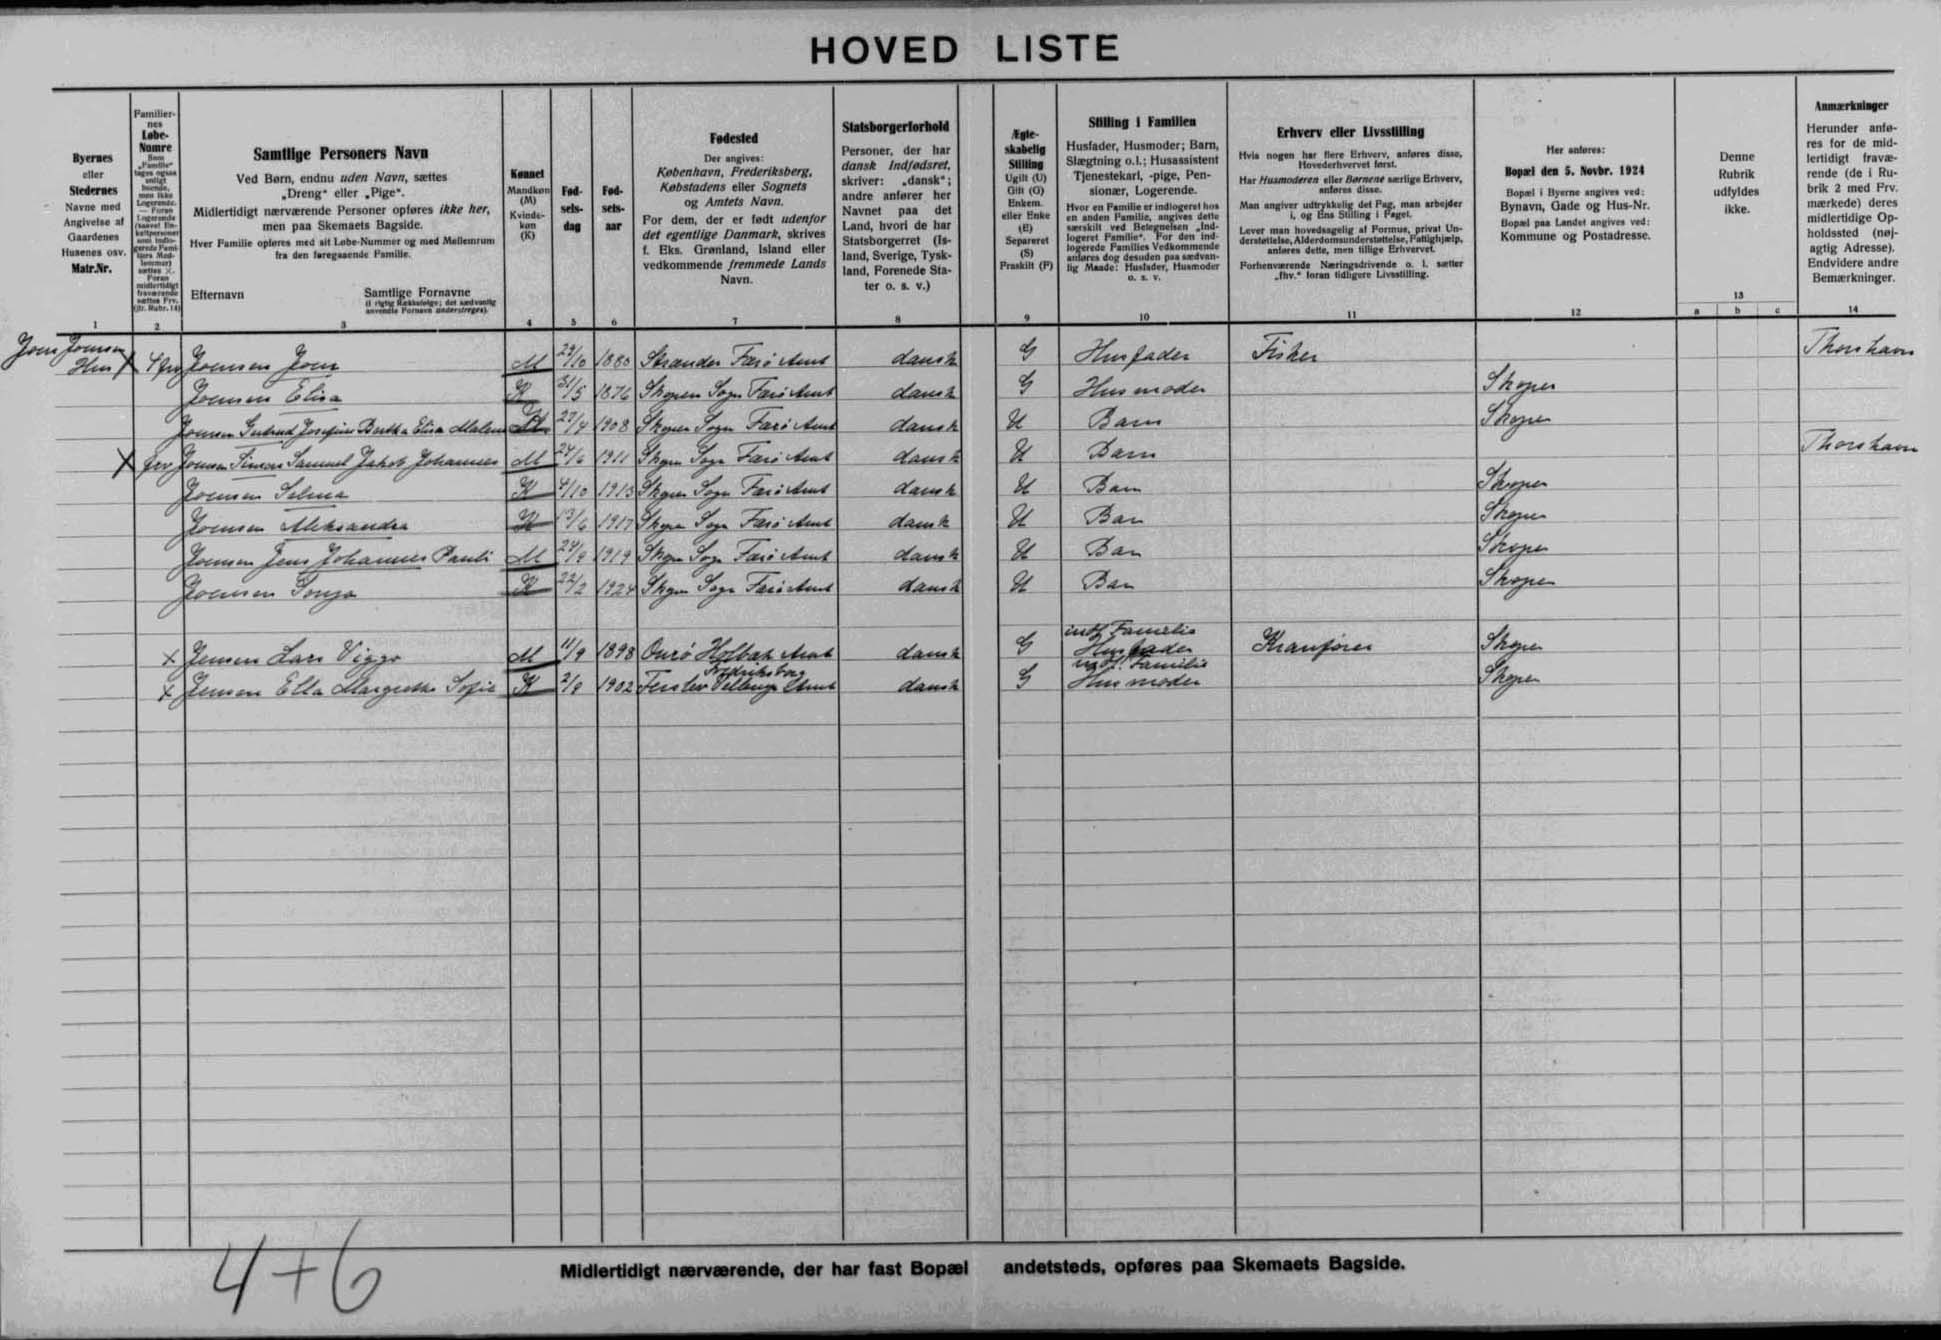 HOVED LISTE
Byernes
eller
Stedernes
Navne med
Angivelse af
Gaardenes
Husenes osv.
Matr.Nr.
1
Familier-
nes
Løbe-
Numre
Som
„Familie“
tages ogsaa
enligt
boende,
men ikke
Logerende.
— Foran
Logerende
sættes ×.
Foran
midlertidigt
fraværende
sættes Frv.
(jfr. Rubr. 14)
2
Samtlige Personers Navn
Ved Børn, endnu uden Navn, sættes
„Dreng“ eller „Pige“.
Midlertidigt nærværende Personer opføres ikke her,
men paa Skemaets Bagside.
Hver Familie opføres med sit Løbe-Nummer og med Mellemrum
fra den foregaaende Familie.
Efternavn
Samtlige Fornavne
(i rigtig Rækkefølge; det sædvanlig
anvendte Fornavn understreges).
3
Kønnet
Mandkøn
(M)
Kvinde-
køn
(K)
4
Fød-
sels-
dag
5
Fød-
sels-
aar
6
Fødested
Der angives:
København, Frederiksberg,
Købstadens eller Sognets
og Amtets Navn.
For dem, der er født udenfor
det egentlige Danmark, skrives
f. Eks. Grønland, Island eller
vedkommende fremmede Lands
Navn.
7
Statsborgerforhold
Personer, der har
dansk Indfødsret,
skriver: „dansk“;
andre anfører her
Navnet paa det
Land, hvori de har
Statsborgerret (Is-
land, Sverige, Tysk-
land, Forenede Sta-
ter o. s. v.)
8
Ægte-
skabelig
Stilling
Ugift (U)
Gift (G)
Enkem.
eller Enke
(E)
Separeret
(S)
Fraskilt (F)
9
Stilling i Familien
Husfader, Husmoder; Barn,
Slægtning o.l.; Husassistent
Tjenestekarl, -pige, Pen-
sionær, Logerende.
Hvor en Familie er indlogeret hos
en anden Familie, angives dette
særskilt ved Betegnelsen „Ind-
logeret Familie“. For den ind-
logerede Families Vedkommende
anføres dog desuden paa sædvan-
lig Maade: Husfader, Husmoder
o. s. v.
10
Erhverv eller Livsstilling
Hvis nogen har flere Erhverv, anføres disse,
Hovederhvervet først.
Har Husmoderen eller Børnene særlige Erhverv,
anføres disse.
Man angiver udtrykkelig det Fag, man arbejder
i, og Ens Stilling i Faget.
Lever man hovedsagelig af Formue, privat Un-
derstøttelse, Alderdomsunderstøttelse, Fattighjælp,
anføres dette, men tillige Erhvervet.
Forhenværende Næringsdrivende o. l. sætter
„fhv.“ foran tidligere Livsstilling.
11
Her anføres:
Bopæl den 5. Novbr. 1924
Bopæl i Byerne angives ved:
Bynavn, Gade og Hus-Nr.
Bopæl paa Landet angives ved:
Kommune og Postadresse.
12
Denne
Rubrik
udfyldes
ikke.
13
a b c
Anmærkninger
Herunder anfø-
res for de mid-
lertidigt fravæ-
rende (de i Ru-
brik 2 med Frv.
mærkede) deres
midlertidige Op-
holdssted (nøj-
agtig Adresse).
Endvidere andre
Bemærkninger.
14
Joen Joensen
Hus × 4 frv Joensen Joen M 29/10 1880 Strænder Færø Amt dansk G Husfader Fisker Thorshavn
Joensen Elisa K 31/5 1876 Skopen Sogn Færø Amt dansk G Husmoder Skopen
Joensen Gertrud Josefine Bertha Elisa Malene K 27/4 1908 Skopen Sogn Færø Amt dansk U Barn Skopen
× frv Joensen Simon Samuel Jakob Johannes M 24/6 1911 Skopen Sogn Færø Amt dansk U Barn Thorshavn
Joensen Selma K 4/10 1913 Skopen Sogn Færø Amt dansk U Barn Skopen
Joensen Aleksandra K 13/6 1917 Skopen Sogn Færø Amt dansk U Barn Skopen
Joensen Jens Johannes Pauli M 24/9 1919 Skopen Sogn Færø Amt dansk U Barn Skopen
Joensen Sonja K 22/2 1924 Skopen Sogn Færø Amt dansk U Barn Skopen
indl Familie
× Jensen Lars Viggo M 11/9 1898 Orø Holbæk Amt dansk G Husfader Kranfører Skopen
Fredriksborg indl. Familie
× Jensen Ella Margrethe Sofie K 2/9 1902 Ferslev Vellerup Amt dansk G Husmoder Skopen
4+6
Midlertidigt nærværende, der har fast Bopæl andetsteds, opføres paa Skemaets Bagside.